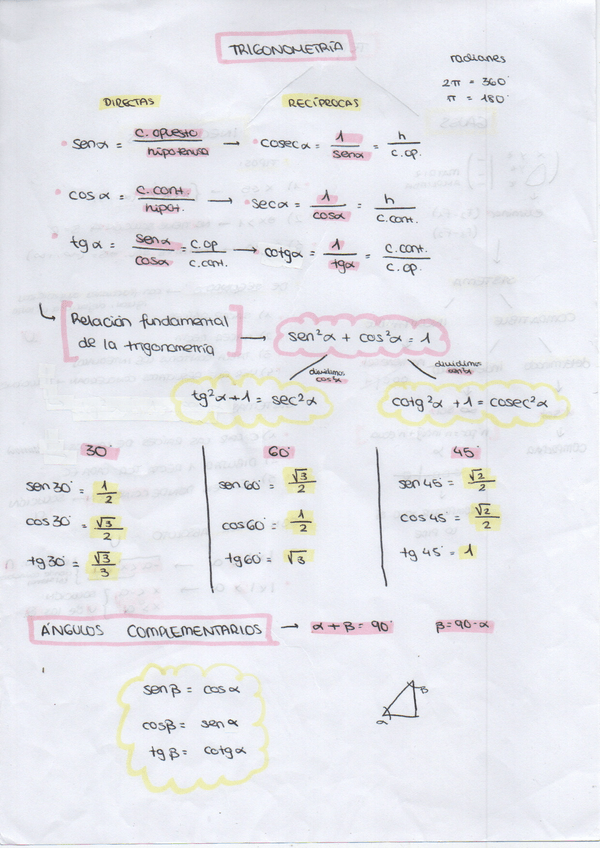 TRIGONOMETRÍA
radianes
2π = 360°
π = 180°
DIRECTAS RECÍPROCAS
senα = c. opuesto / hipotenusa → cosecα = 1 / senα = h / c.op.
cosα = c. cont. / hipot. → secα = 1 / cosα = h / c.cont.
tgα = senα / cosα = c.op / c.cont. → cotgα = 1 / tgα = c.cont. / c.op.
Relación fundamental
de la trigonometría → sen²α + cos²α = 1
dividimos
cos²α
dividimos
tg²α + 1 = sec²α cotg²α + 1 = cosec²α
30° 60° 45°
sen30° = 1/2 sen60° = √3/2 sen45° = √2/2
cos30° = √3/2 cos60° = 1/2 cos45° = √2/2
tg30° = √3/3 tg60° = √3 tg45° = 1
ÁNGULOS COMPLEMENTARIOS → α + β = 90° β = 90-α
senβ = cosα
cosβ = senα
tgβ = cotgα
β
α